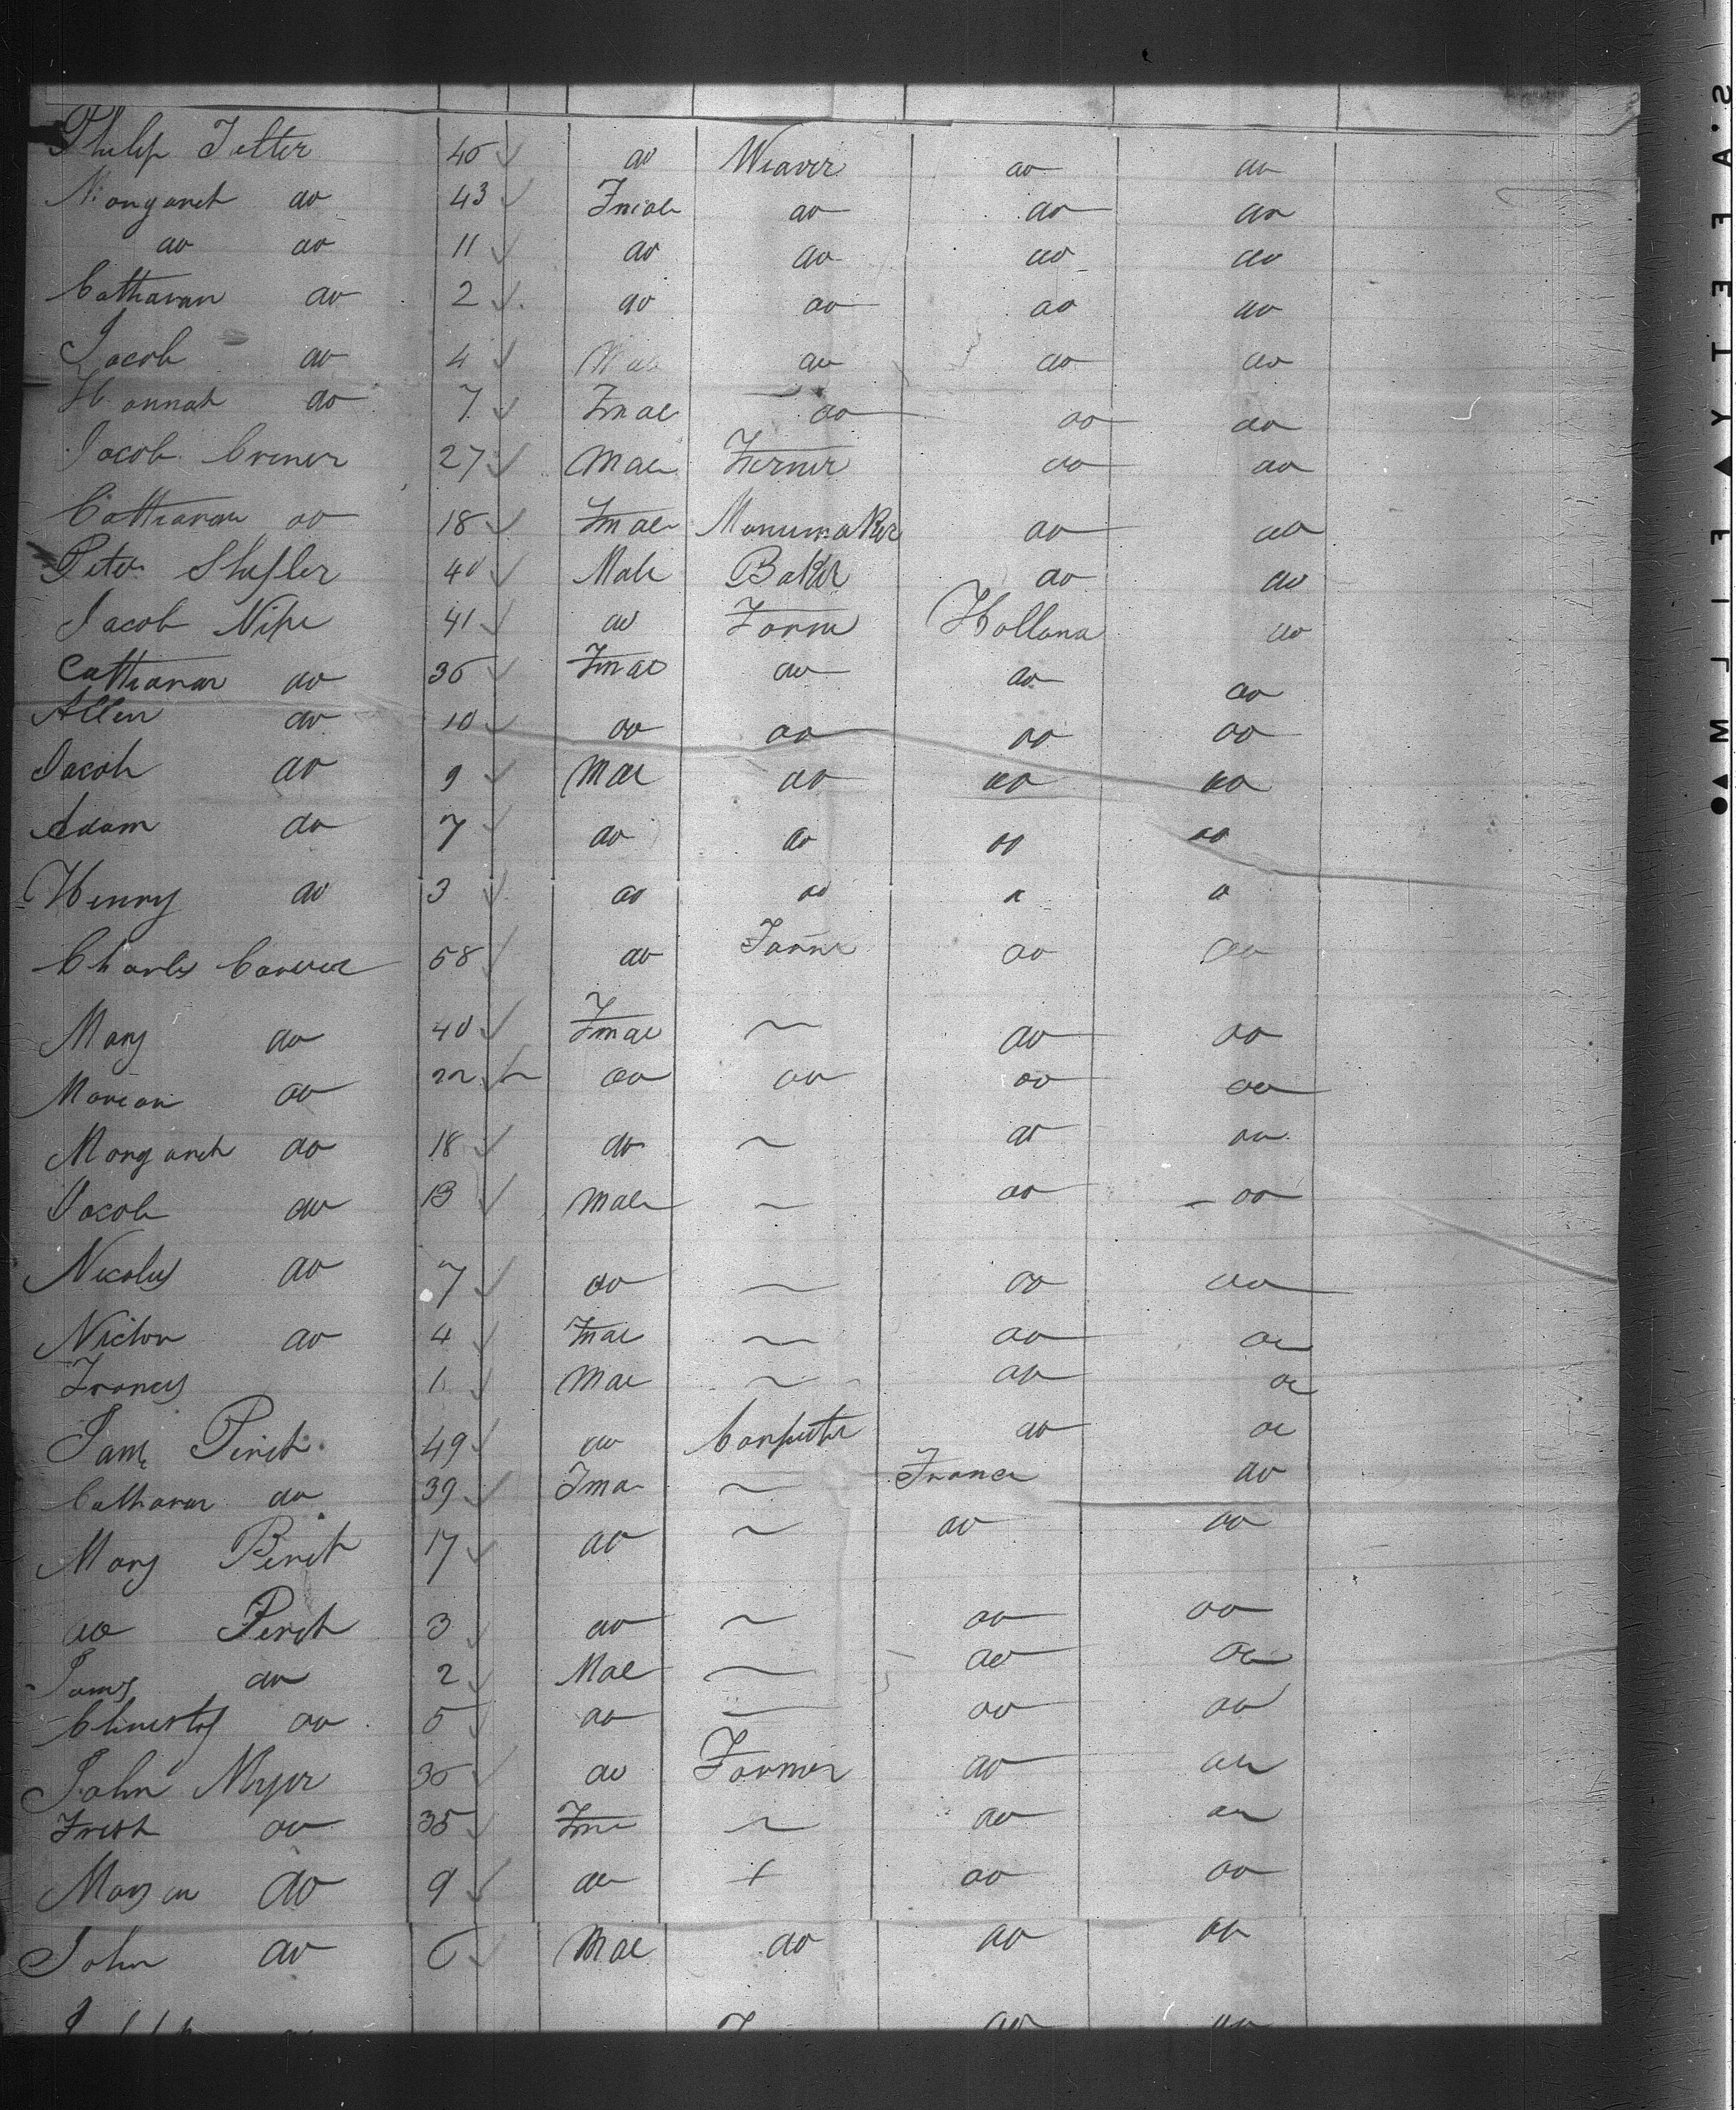 Philip Telter 45 do Weaver do do
Margaret do 43 Fmale do do do
do do 11 do do do do
Catharan do 2 do do do do
Jacob do 4 Male do do do
Hannah do 7 Fmal do do do
Jacob Crener 27 Mal Ferner do do
Catharan do 18 Fmal do do
Peter Shefler 40 Male Baker do do
Jacob Nipe 41 do Farme Holland do
Catharan do 35 Fmal do do do
Allen do 10 do do do do
Jacob do 9 Mal do do do
Adam do 7 do do do do
Henry do 3 do do
Charles 58 do Farme do do
Mary do 40 Fmal ~ do do
Marian do 22 do do do do
Margaret do 18 do ~ do do
Jacob do 13 Male ~ do do
Nicolus do 7 do ~ do do
do 4 Fmal ~ do do
Francis 1 Mal ~ do do
Perich 49 do Carpenter do do
Catharan do 39 Fma ~ France do
Mary Perich 17 do ~ do do
do Perich 3 do ~ do do
James do 2 Mal ~ do do
do 5 do ~ do do
John Myer 35 do Farmer do do
do 35 Fme ~ do do
do 9 do + do do
John do 6 Mal do do do
do do